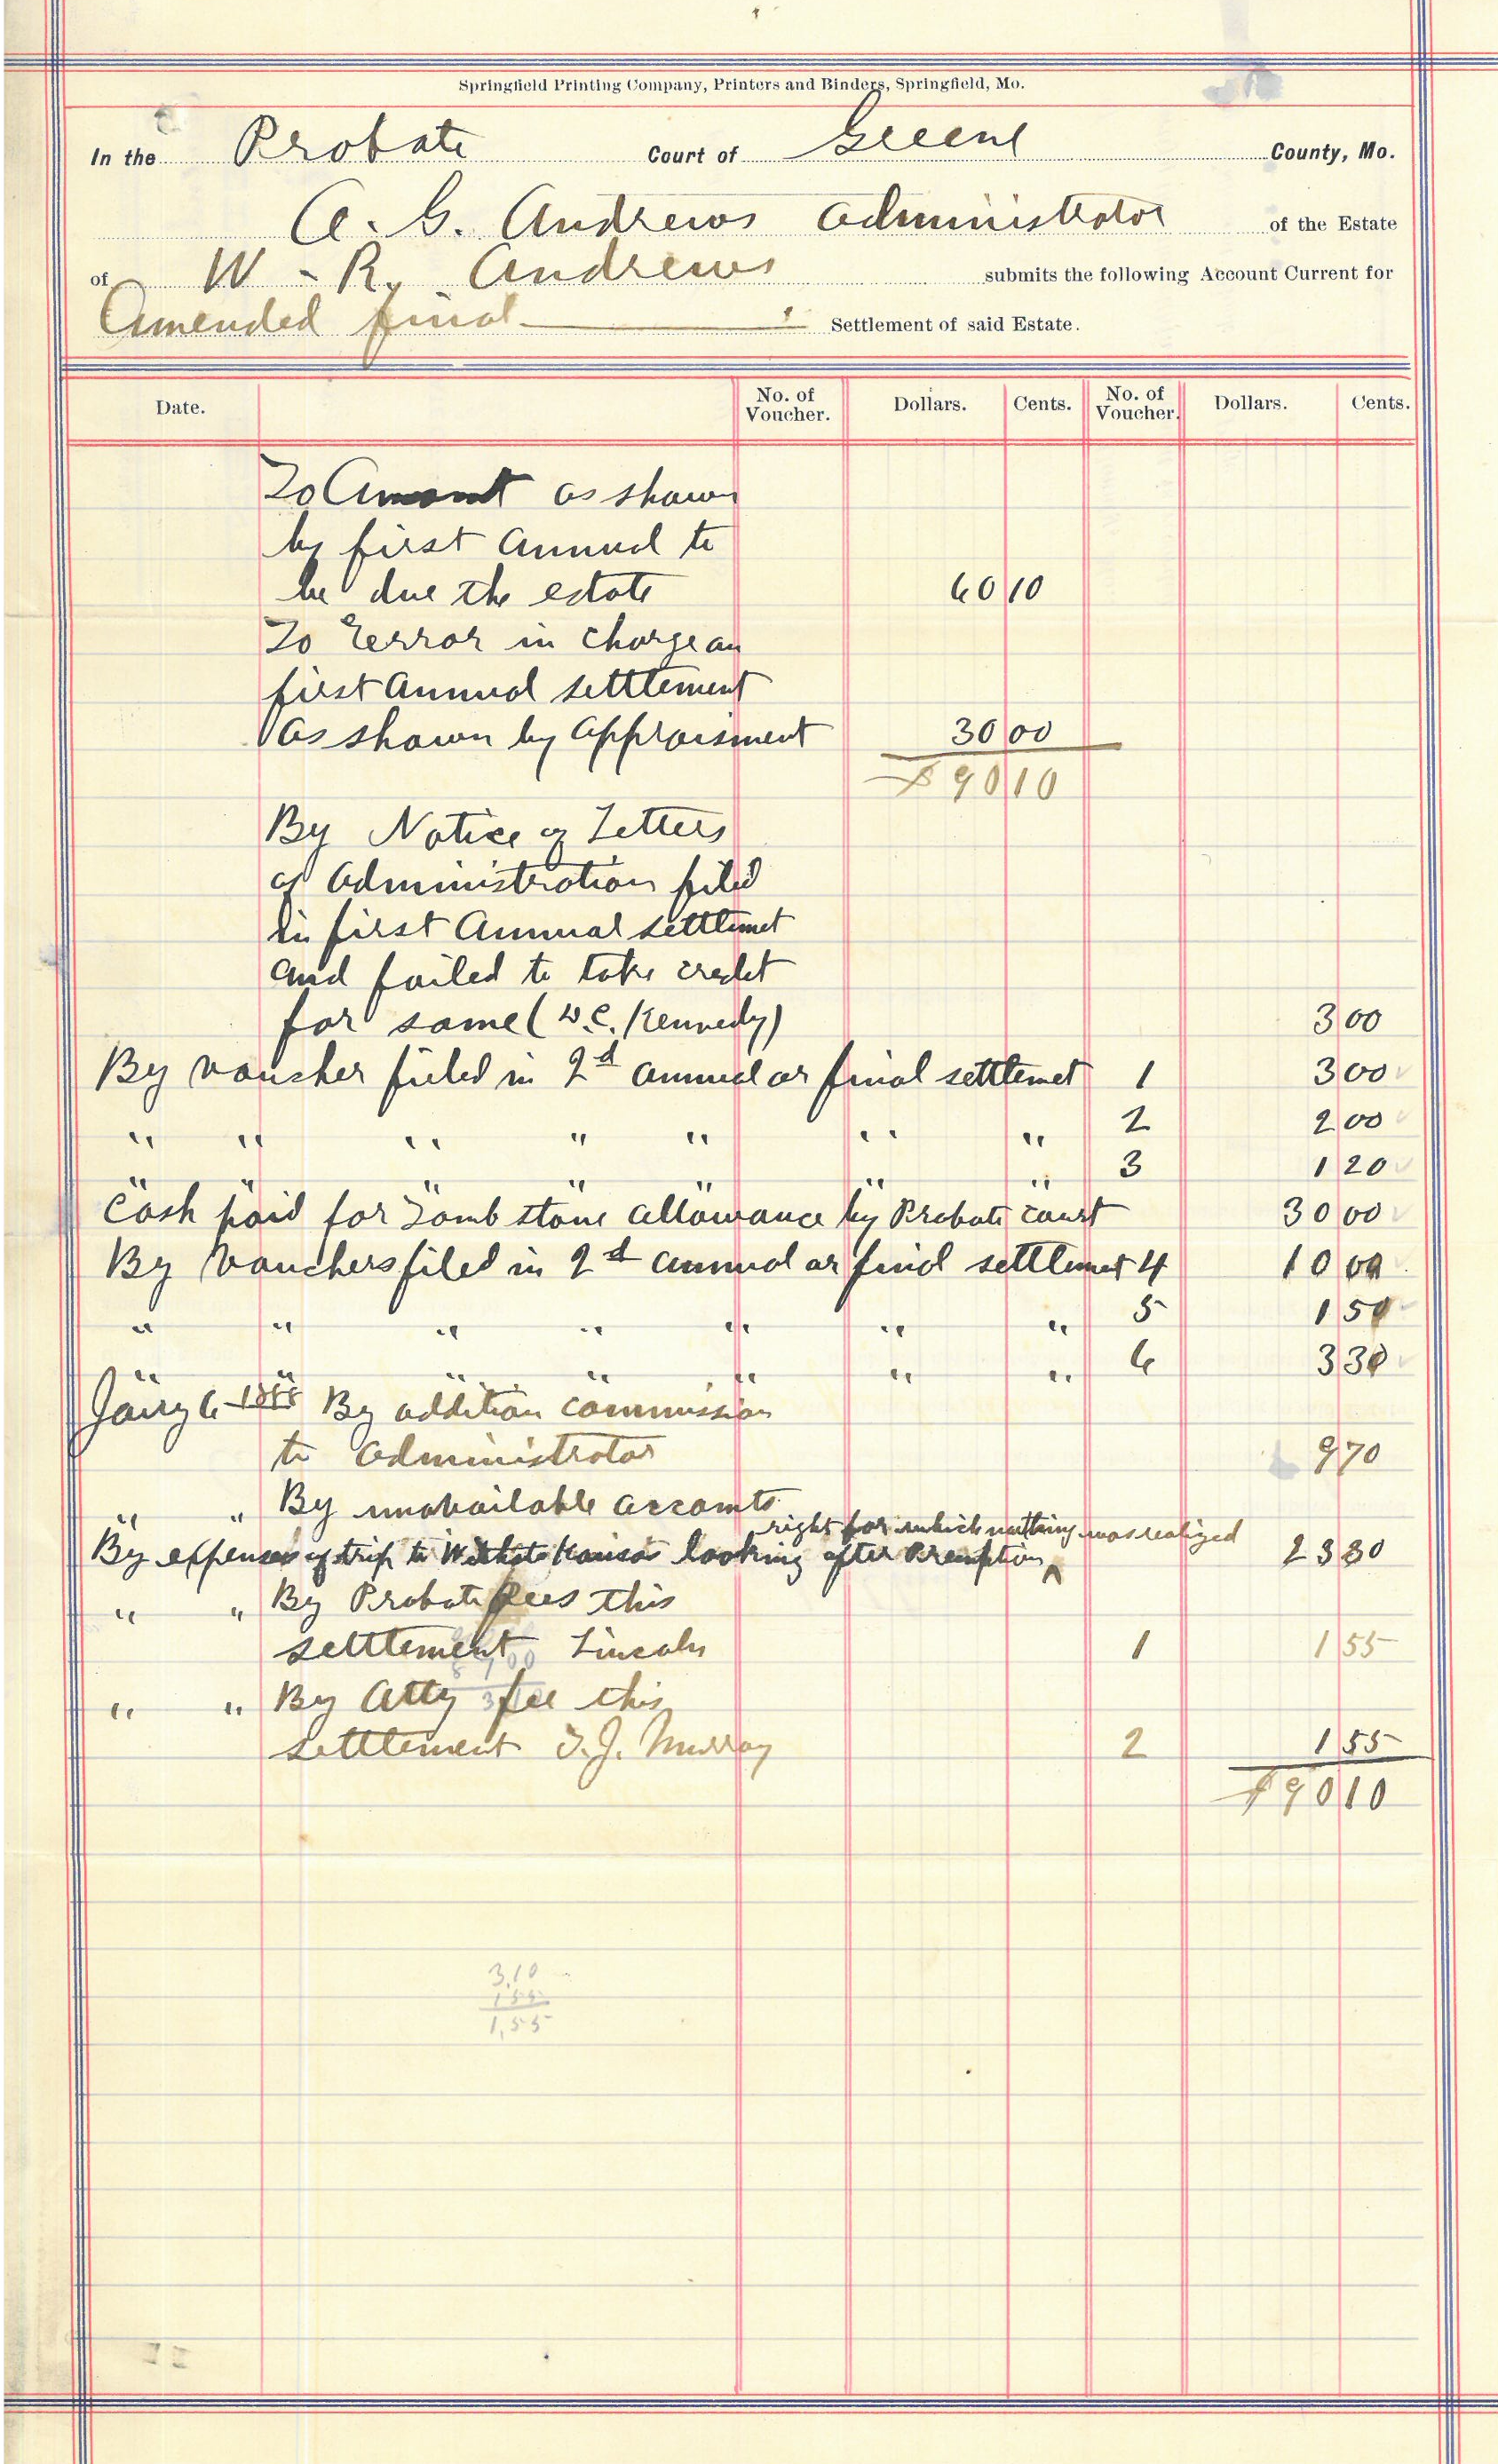 Springfield Printing Company, Printers and Binders, Springfield, Mo.
In the Probate Court of Greene County, Mo.
A. G. Andrews Administrator of the Estate
of W - R. Andrews submits the following Account Current for
Amended final Settlement of said Estate.
Date. No. of Voucher. Dollars. Cents. No. of Voucher. Dollars. Cents.
To Amount as shown
by first Annual to
be due the estate 60 10
To Eerror in charge on
first Annual settlement
As shown by Appraisment 30 00
$90 10
By Notice of Letters
of Administration filed
in first Annual settlemet
and failed to take credit
for same (W.C. Kennedy) 3 00
By voucher fieled in 2d annual or final settlemet 1 3 00
" " " " " " " 2 2 00
" " " " " " " 3 1 20
Cash paid for Tomb stone allowance by Probate court 30 00
By Vouchers filed in 2d annual or final settlemet 4 10 00
" " " " " " " 5 1 50
" " " " " " " 6 3 30
Jany 6 1888 By addition commission
to Administrator 9 70
" " By unavailable accounts
right for which nothing was realized
By expenses of trip to Witchita Kansas looking after Preemption ^ 23 30
" " By Probate fees this
settlement Lincoln 1 1 55
" " By Atty fee this
settlement T. J. Murray 2 1 55
$90 10
3.10
155
1,55